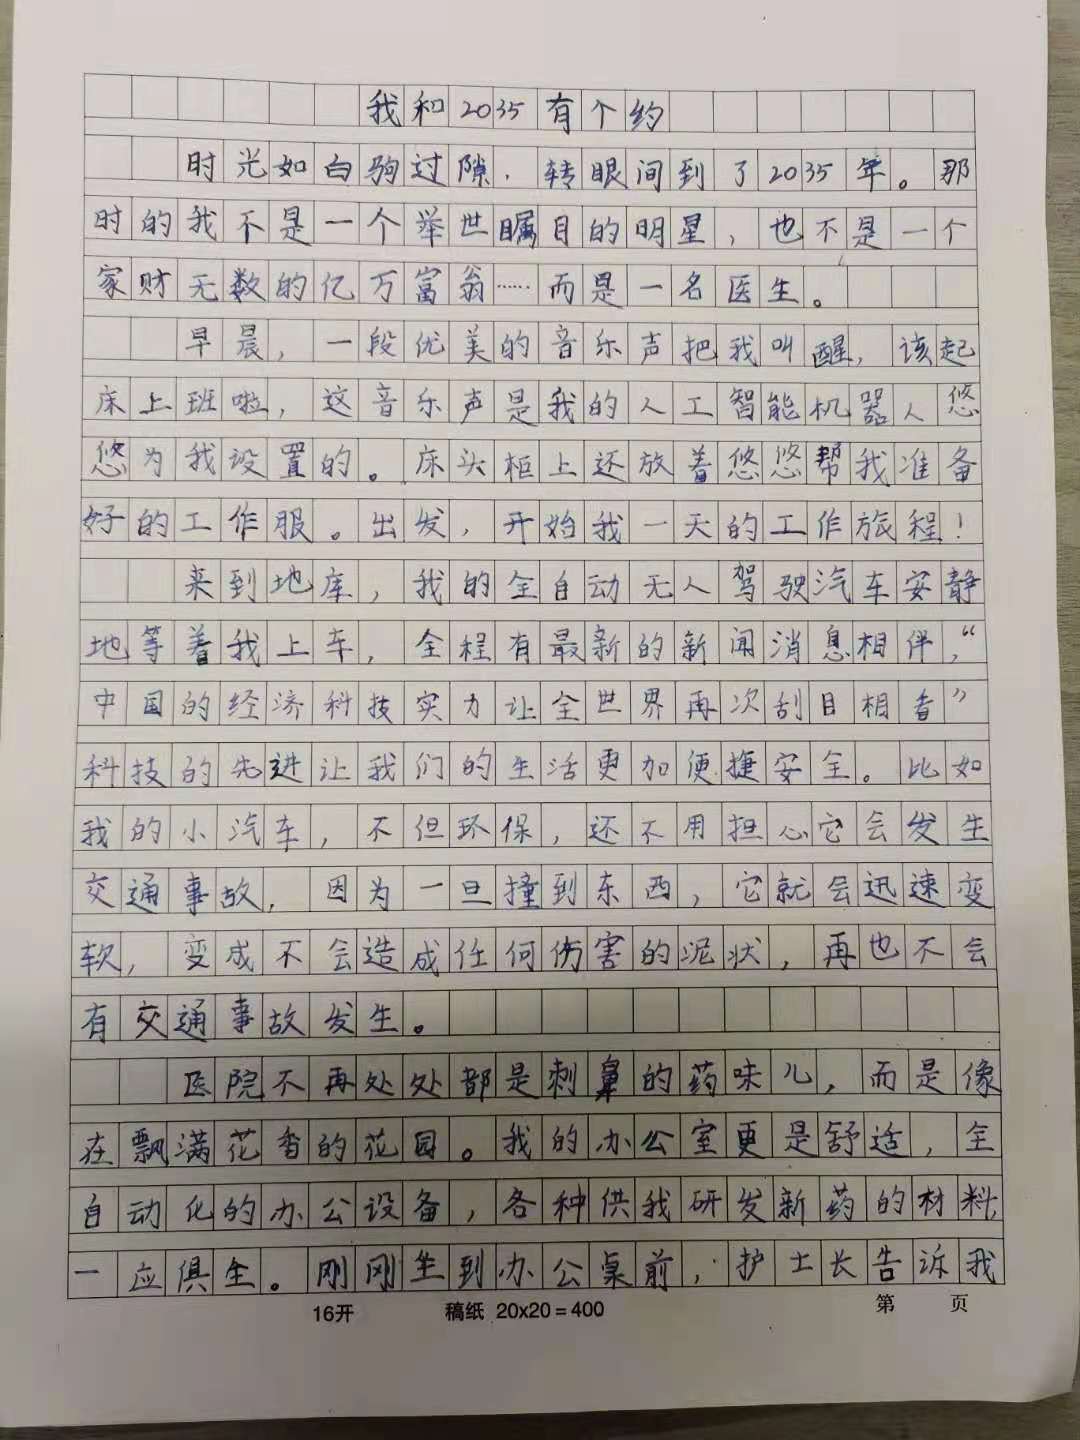 我和2035有个约
时光如白驹过隙，转眼间到了2035年。那
时的我不是一个举世瞩目的明星，也不是一个
家财无数的亿万富翁……而是一名医生。
早晨，一段优美的音乐声把我叫醒，该起
床上班啦，这音乐声是我的人工智能机器人悠
悠为我设置的。床头柜上还放着悠悠帮我准备
好的工作服。出发，开始我一天的工作旅程！
来到地库，我的全自动无人驾驶汽车安静
地等着我上车，全程有最新的新闻消息相伴，“
中国的经济科技实力让全世界再次刮目相看”
科技的先进让我们的生活更加便捷安全。比如
我的小汽车，不但环保，还不用担心它会发生
交通事故，因为一旦撞到东西，它就会迅速变
软，变成不会造成任何伤害的泥状，再也不会
有交通事故发生。
医院不再处处都是刺鼻的药味儿，而是像
在飘满花香的花园。我的办公室更是舒适，全
自动化的办公设备，各种供我研发新药的材料
一应俱全。刚刚坐到办公桌前，护士长告诉我
16开 稿纸 20x20=400 第 页